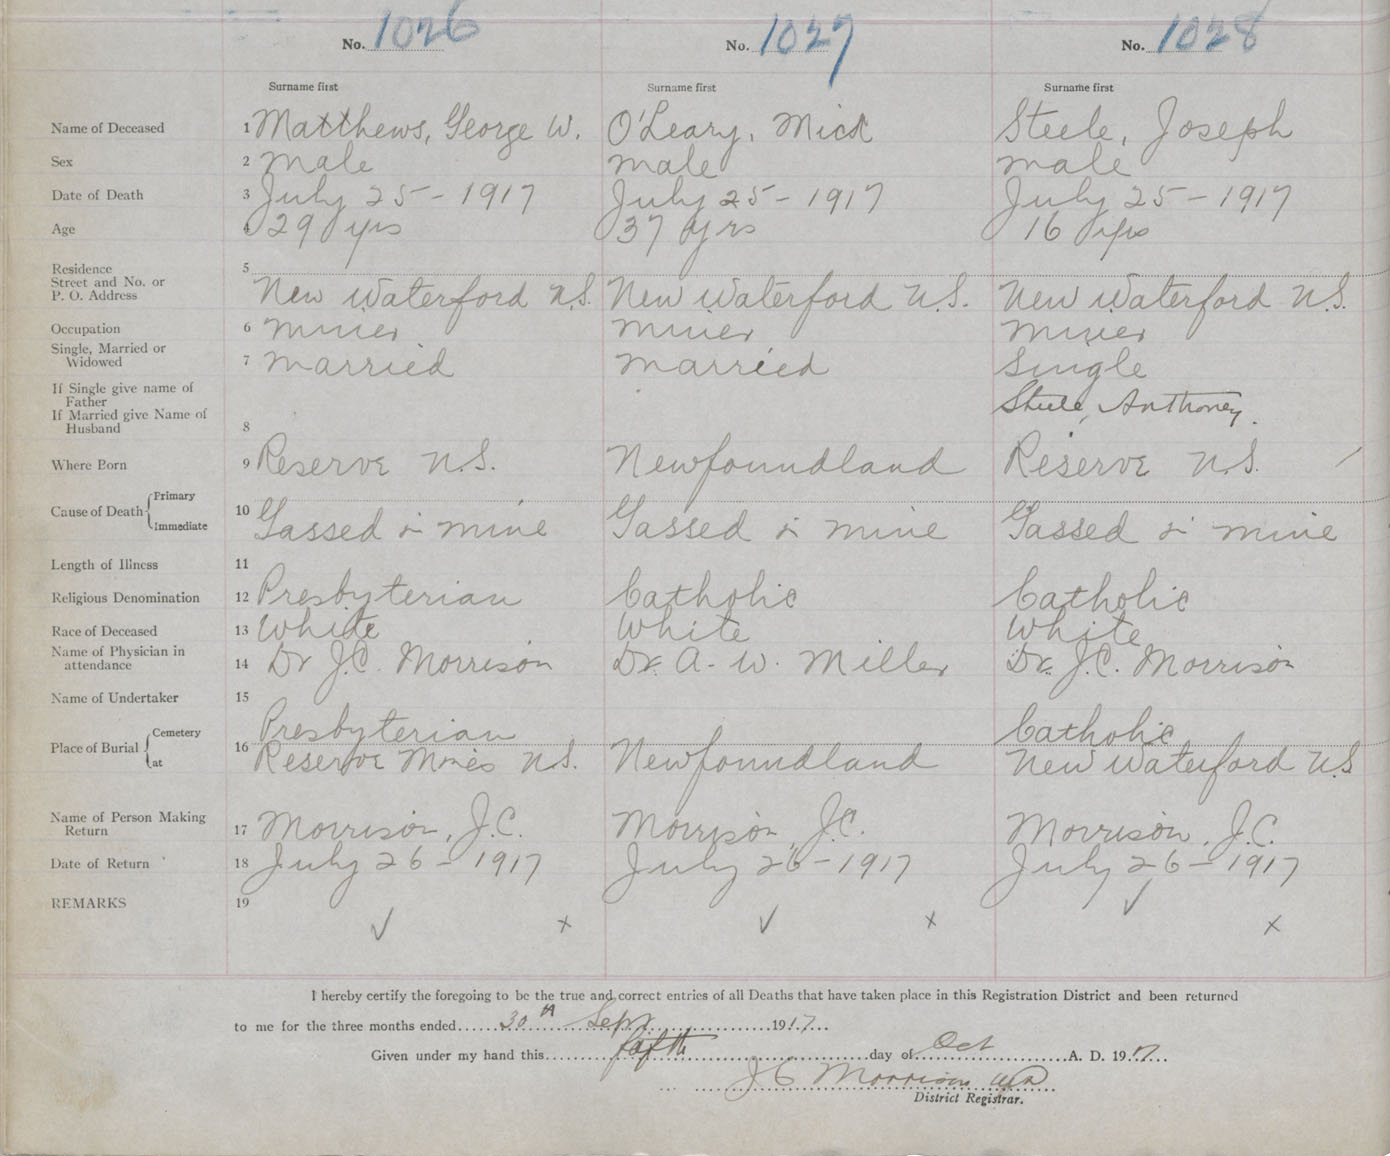 No. 1026 No. 1027 No. 1028
Surname first Surname first Surname first
Name of Deceased 1 Matthews, George W. O'Leary, Mick Steele, Joseph
Sex 2 male male male
Date of Death 3 July 25 - 1917 July 25 - 1917 July 25 - 1917
Age 4 29 yrs 37 yrs 16 yrs
Residence 5
Street and No. or
P. O. Address New Waterford N.S. New Waterford N.S. New Waterford N.S.
Occupation 6 miner miner miner
Single, Married or
Widowed 7 married married Single
If Single give name of
Father Steele, Anthoney.
If Married give Name of
Husband 8
Where Born 9 Reserve N.S. Newfoundland Reserve N.S.
Cause of Death { Primary
Immediate 10 Gassed in mine Gassed in mine Gassed in mine
Length of Illness 11
Religious Denomination 12 Presbyterian Catholic Catholic
Race of Deceased 13 White White White
Name of Physician in
attendance 14 Dr J.C. Morrison Dr. A. W. Miller Dr. J.C. Morrison
Name of Undertaker 15
Place of Burial { Cemetery Presbyterian Catholic
at 16 Reserve Mines N.S. Newfoundland New Waterford N.S
Name of Person Making
Return 17 Morrison, J.C. Morrison, J.C. Morrison, J.C.
Date of Return 18 July 26 - 1917 July 26 - 1917 July 26 - 1917
REMARKS 19
✓ x ✓ x ✓ x
I hereby certify the foregoing to be the true and correct entries of all Deaths that have taken place in this Registration District and been returned
to me for the three months ended 30th Sept 1917
Given under my hand this fifth day of Oct A. D. 1917
J C Morrison MD
District Registrar.